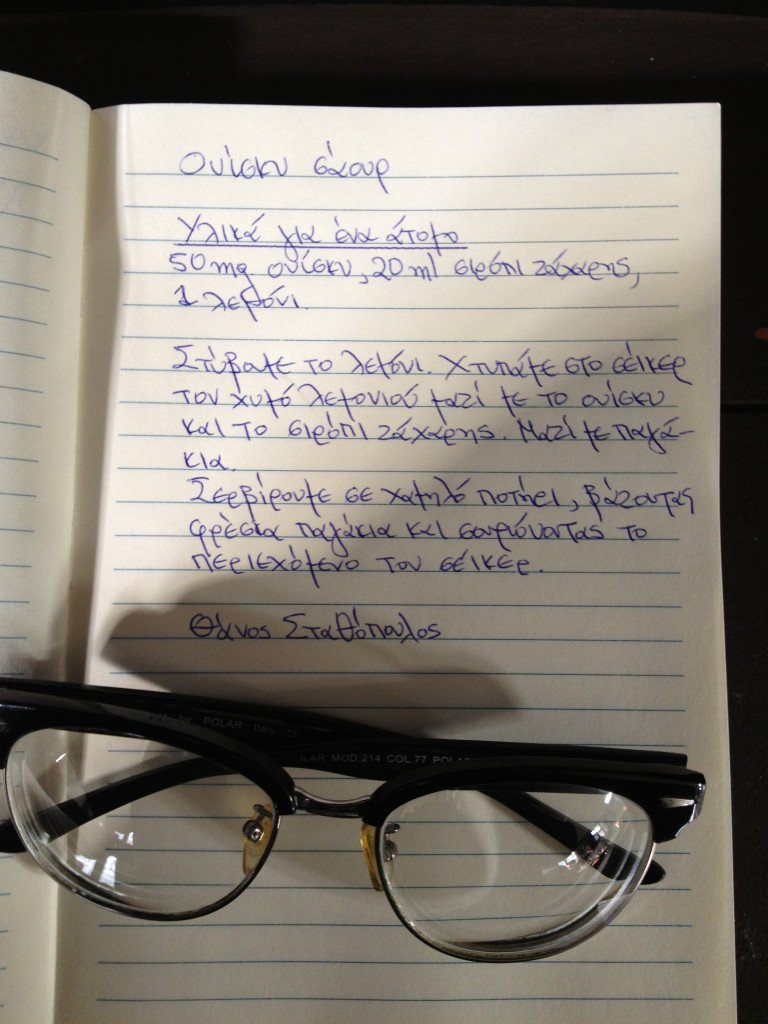 Ουίσκυ σάουρ
Υλικά για ένα άτομο
50mg ουίσκυ, 20ml σιρόπι ζάχαρης,
1 λεμόνι.
Στύβουμε το λεμόνι. Χτυπάμε στο σέικερ
τον χυμό λεμονιού μαζί με το ουίσκυ
και το σιρόπι ζάχαρης. Μαζί με παγά-
κια.
Σερβίρουμε σε χαμηλό ποτήρι, βάζοντας
φρέσκα παγάκια και σουρώνοντας το
περιεχόμενο του σέικερ.
Θάνος Σταθόπουλος
by POLAR Italy CE
POLAR MOD.214 COL.77 POLA